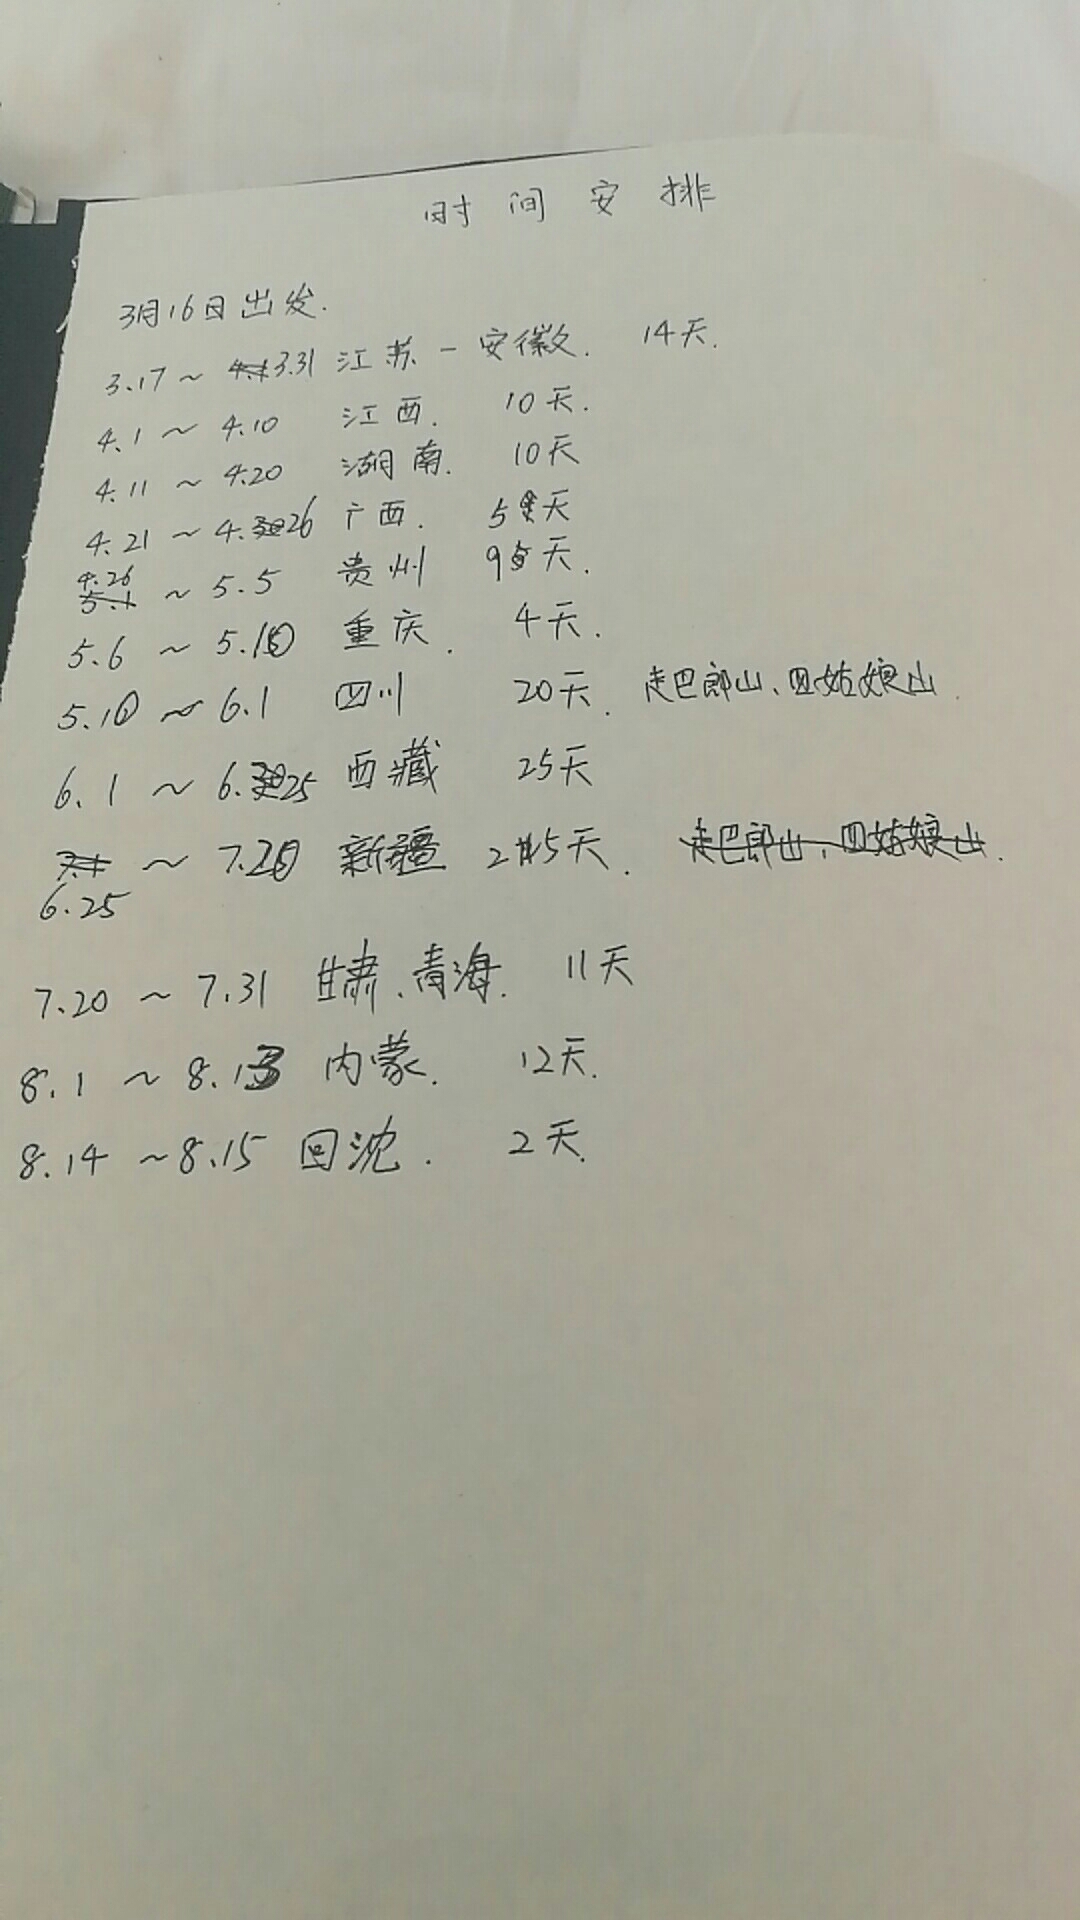 时间安排
3月16日出发.
3.17 ~ 3.31 江苏-安徽. 14天.
4.1 ~ 4.10 江西. 10天.
4.11 ~ 4.20 湖南. 10天
4.21 ~ 4.26 广西. 5天
4.26 ~ 5.5 贵州 9天.
5.6 ~ 5.10 重庆. 4天.
5.10 ~ 6.1 四川 20天. 走巴郎山、四姑娘山.
6.1 ~ 6.25 西藏 25天
6.25 ~ 7.20 新疆 25天. 走巴郎山、四姑娘山.
7.20 ~ 7.31 甘肃、青海. 11天
8.1 ~ 8.13 内蒙. 12天.
8.14 ~ 8.15 回沈. 2天.